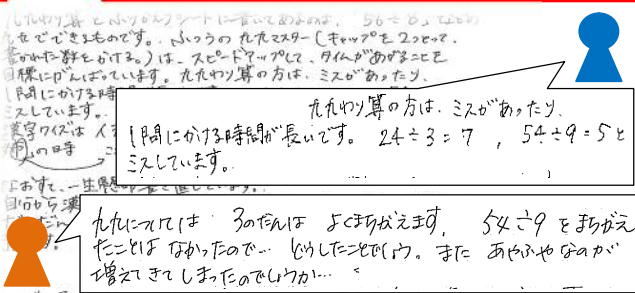 九九わり算とふりかえりシートに書いてあるのは、"56÷8"などの
九九でできるものです。ふつうの九九マスター（キャップを2つとって、
書かれた数をかける。）は、スピードアップして、タイムがあがることを
目標にがんばっています。九九わり算の方は、ミスがあったり、
1問にかける時間
ミスしています。
漢字クイズは
の日時
なおすて、一生懸命
自分から漢
九九わり算の方は、ミスがあったり、
1問にかける時間が長いです。 24÷3=7 , 54÷9=5と
ミスしています。
九九については 3のだんは よくまちがえます。 54÷9をまちがえ
たことは なかったので… どうしたことでしょう。また あやふやなのが
増えてきてしまったのでしょうか…